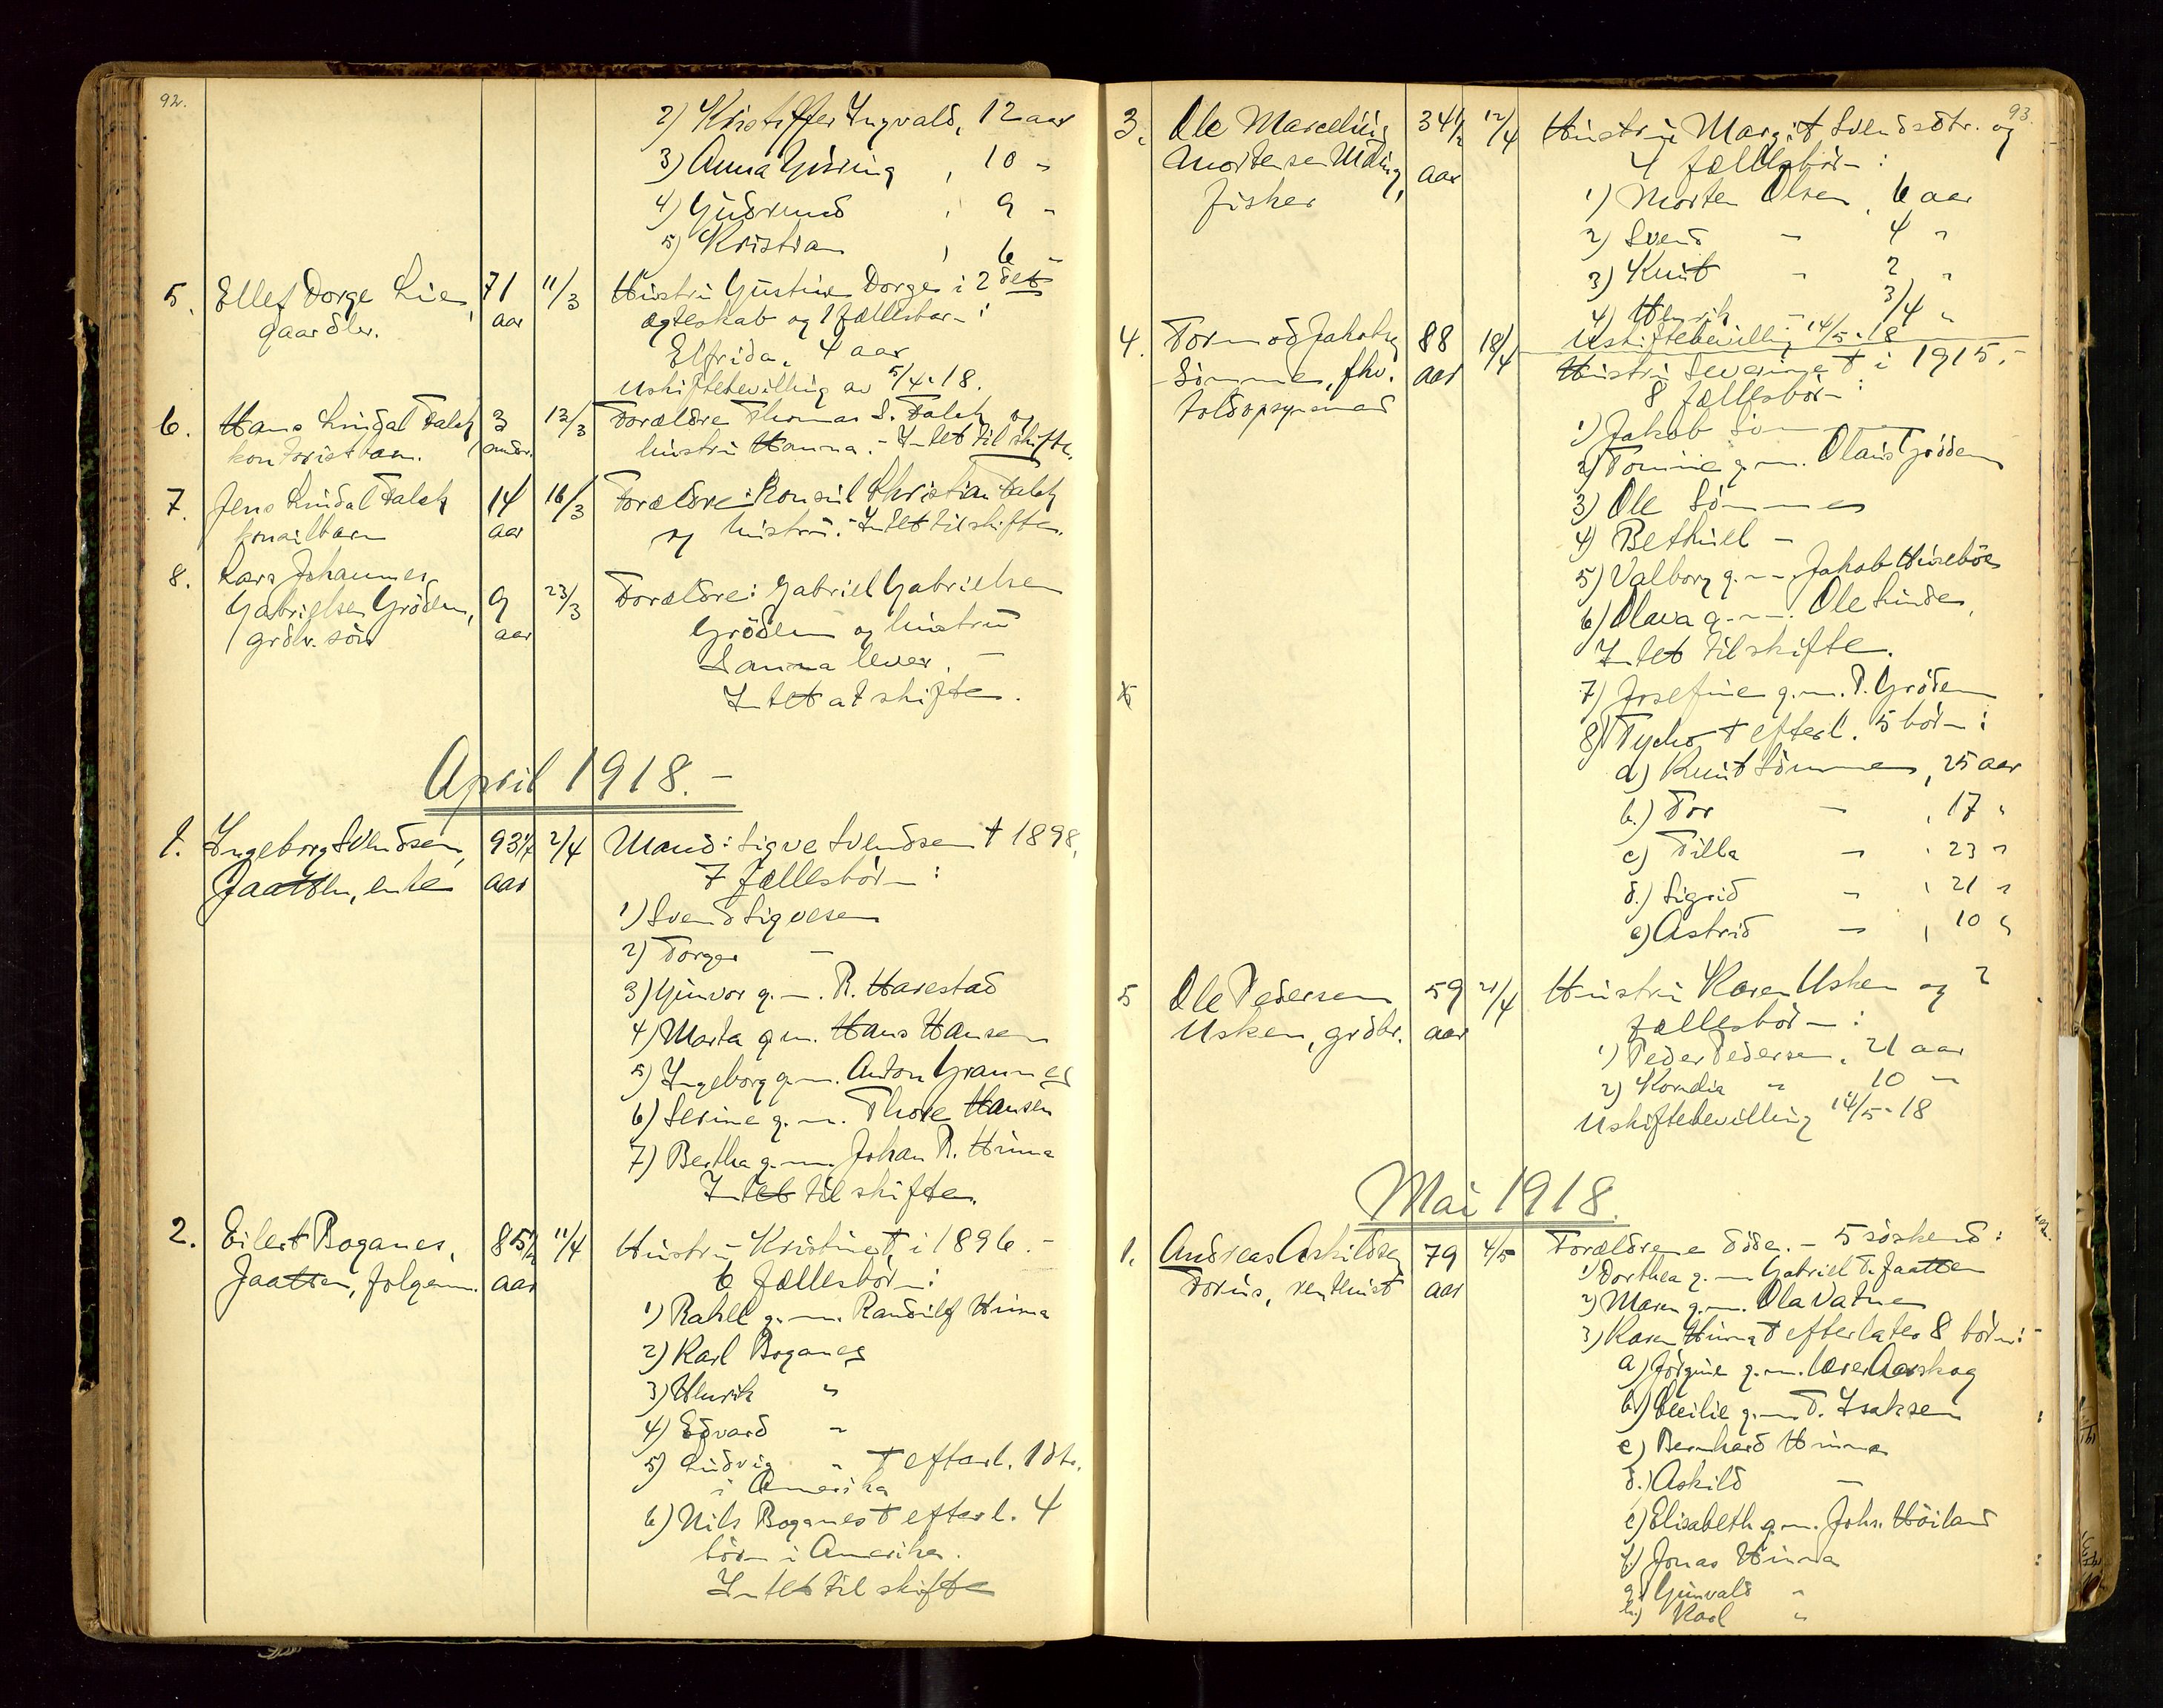 92.
2) Kristoffer Ingvald, 12 aar
3) Anna Gising, 10 "
4) Gudrund, 9 "
5) Kristian, 6 "
5. Ellef Dorge Lie, 71 11/3 Hustru Gustine Dorge i 2det
gaardbr. aar egteskab og 1 fællesbarn:
Elfrida, 4 aar
Uskiftebevilling av 5/4-18.
6. Hans Lindal Falck 3 13/3 Forældre Thomas S. Falck og
kontoristbarn. mdr. hustru Hanna. - Intet til skifte.
7. Jens Lindal Falck 14 16/3 Forældre: Konsul Christian Falck
konsulbarn aar og hustru. - Intet til skifte.
8. Lars Johannes
Gabrielsen Grödem, 9 23/3 Forældre: Gabriel Gabrielsen
grdbr. sön aar Grödem og hustru
Sanna lever. -
Intet at skifte.
April 1918. -
1. Ingeborg Svendsen, 93 1/2 2/4 Mand: Sigve Svendsen † 1898,
Jaatten, enke aar 7 fællesbörn:
1) Svend Sigvesen
2) Torger -
3) Gunvor g. m. R. Harestad
4) Marta g. m. Hans Hansen
5) Ingeborg g. m. Anton Grannes
6) Serine g. m. Thore Hansen
7) Bertha g. m. Johan R. Hinna
Intet til skifte.
2. Eilert Boganes, 85 1/2 11/4 Hustru Kristine † i 1896. -
Jaatten, folgem. aar 6 fællesbörn:
1) Rakel g. m. Randulf Hinna
2) Karl Boganes
3) Henrik "
4) Edvard "
5) Ludvig " † efterl. 1 dtr.
i Amerika
6) Nils Boganes † efterl. 4
börn i Amerika.
Intet til skifte
93.
3. Ole Marcelius 34 1/2 12/4 Hustru Margit Svendsdtr. og
Mortensen aar 4 fællesbörn:
fisker
1) Morten Olsen, 6 aar
2) Svend - 4 "
3) Knut - 2 "
4) Henrik - 3/4 "
Uskiftebevilling 14/5-18
4. Tormod Jakobsen 88 18/4 Hustru Severine † i 1915. -
Sömme, fhv. aar 8 fællesbörn:
toldopsynsmand
1) Jakob Sömme
2) Tomine g. m. Olaus Grödem
3) Ole Sömme
4) Bethuel -
5) Valborg g. m. Jakob Husebö
6) Olava g. m. Ole Lunde,
Intet til skifte.
7) Josefine g. m. P. Grödem
8) Tycho † efterl. 5 börn:
a) Knut Sömme, 25 aar
b.) Tor -, 17 "
c) Tilla -, 23 "
d.) Sigrid -, 21 "
e) Astrid -, 10 "
5 Ole Pedersen 59 21/4 Hustru Karen Usken og 2
Usken, grdbr. aar fællesbörn:
1) Peder Pedersen, 21 aar
2) Kornelia " 10 "
Uskiftebevilling 14/5-18
Mai 1918.
1. Andreas Askildsen 79 4/5 Forældrene döde. - 5 söskend:
Forus, rentenist aar 1) Dorthea g. m. Gabriel T. Jaatten
2) Maren g. m. Ola Vatne
3) Karen Hinna † efterlater 8 börn:
a) Jörgine g. m. lærer Aarskog
b) Cecilie g. m. T. Isaksen
c) Bernhard Hinna
d.) Askild -
e) Elisabeth g. m. Johs. Höiland
f.) Jonas Hinna
g.) Gunvald "
h.) Karl "